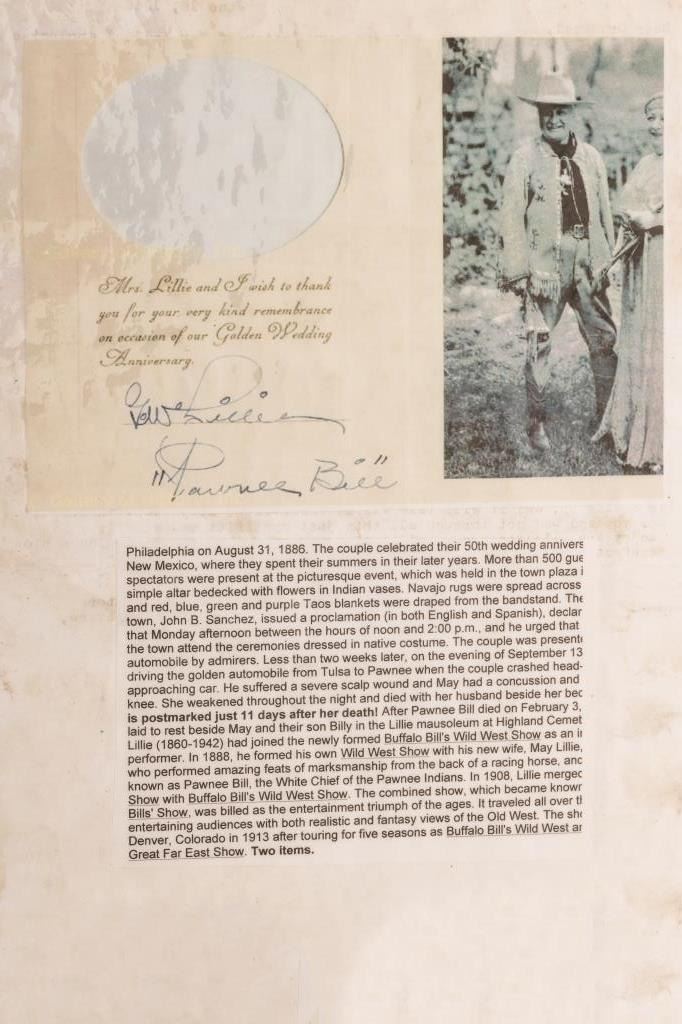 Mrs. Lillie and I wish to thank
you for your very kind remembrance
on occasion of our Golden Wedding
Anniversary.
GW Lillie
"Pawnee Bill"
Philadelphia on August 31, 1886. The couple celebrated their 50th wedding annivers
New Mexico, where they spent their summers in their later years. More than 500 gue
spectators were present at the picturesque event, which was held in the town plaza i
simple altar bedecked with flowers in Indian vases. Navajo rugs were spread across
and red, blue, green and purple Taos blankets were draped from the bandstand. The
town, John B. Sanchez, issued a proclamation (in both English and Spanish), declar
that Monday afternoon between the hours of noon and 2:00 p.m., and he urged that
the town attend the ceremonies dressed in native costume. The couple was presente
automobile by admirers. Less than two weeks later, on the evening of September 13
driving the golden automobile from Tulsa to Pawnee when the couple crashed head-
approaching car. He suffered a severe scalp wound and May had a concussion and
knee. She weakened throughout the night and died with her husband beside her bed
is postmarked just 11 days after her death! After Pawnee Bill died on February 3,
laid to rest beside May and their son Billy in the Lillie mausoleum at Highland Cemet
Lillie (1860-1942) had joined the newly formed Buffalo Bill's Wild West Show as an i
performer. In 1888, he formed his own Wild West Show with his new wife, May Lillie,
who performed amazing feats of marksmanship from the back of a racing horse, and
known as Pawnee Bill, the White Chief of the Pawnee Indians. In 1908, Lillie merged
Show with Buffalo Bill's Wild West Show. The combined show, which became known
Bills' Show, was billed as the entertainment triumph of the ages. It traveled all over th
entertaining audiences with both realistic and fantasy views of the Old West. The sho
Denver, Colorado in 1913 after touring for five seasons as Buffalo Bill's Wild West an
Great Far East Show. Two items.